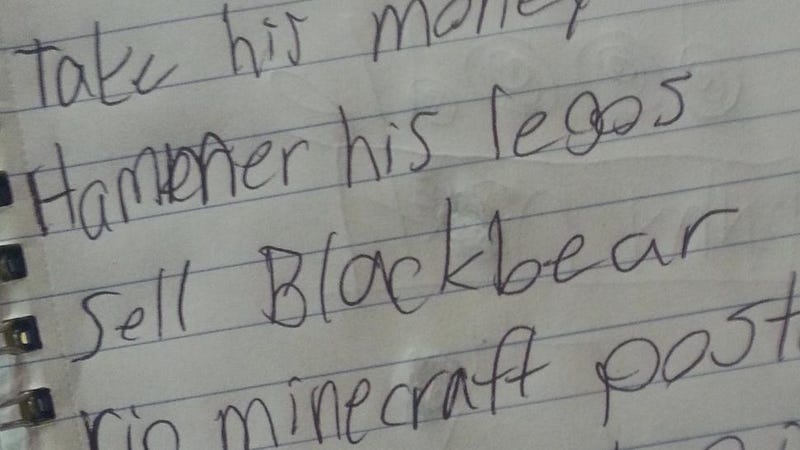 Take his money
Hammer his legos
Sell Blackbear
rip minecraft post